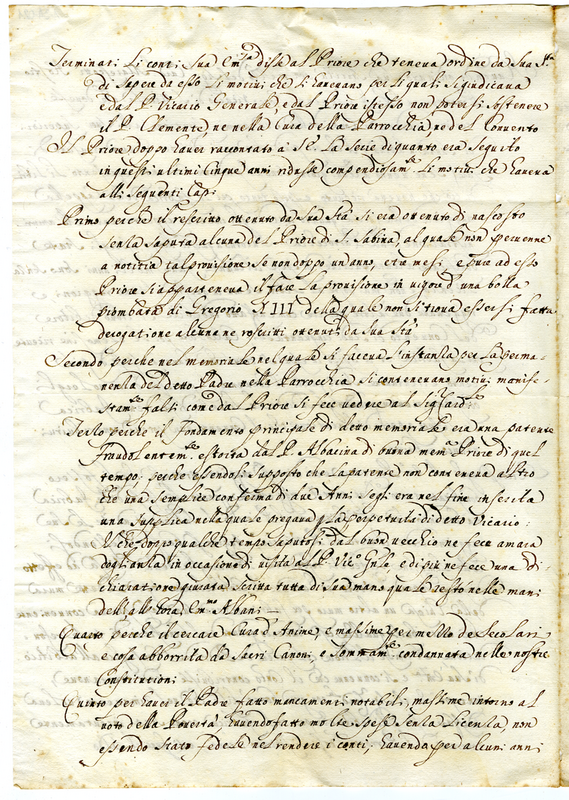 Terminati li conti Sua Em.za disse al Priore che teneva ordine da Sua S.tà
di sapere da esso li motivi che si havevano per li quali si giudicava
e dal P. Vicario Generale, e dal Priore istesso non potersi sostenere
il P. Clemente, ne nella Cura della Parrocchia, ne del Convento
Il Priore doppo haver raccontato a la serie di quanto era seguito
in questi ultimi Cinque anni ridusse compendiosam.te li motivi che haveva
alli sequenti Capi
Primo perche il rescritto ottenuto da Sua Stà si era ottenuto di nascosto
senza saputa alcuna del Priore di S. Sabina, al quale non pervenne
a notitia tal provisione se non doppo un anno, e tre mesi, e pure ad esso
Priore si apparteneva il fare la provisione in vigore d'una bolla
piombata di Gregorio XIII della quale non si trova essersi fatta
derogatione alcuna ne rescritti ottenuti da Sua Stà
Secondo perche nel memoriale nel quale si faceva l'instanza per la perma-
nenza del detto Padre nella Parrocchia si contenevano motivi manife-
stam.te falsi come dal Priore si fece vedere al Sig.r Card.le
Terzo perche il fondamento principale di detto memoriale era una patente
fraudolentem.te estorta dal P. Albacina di buona mem.a Priore di quel
tempo; perche essendosi supposto che la patente non conteneva altro
che una semplice conferma di due Anni segli era nel fine inserita
una supplica nella quale pregava la perpetuità di detto Vicario:
Il che doppo qualche tempo saputosi dal buon vecchio ne fece amara
doglianza in occasione di visita al P. Vic.o Gnle, e di più ne fece una di-
chiaratione giurata scritta tutta di sua mano quale restò nelle mani
dell'all'hora Em.mo Albani
Quarto perche il cercare Cura d'Anime, e massime per mezzo de Secolari
e cosa abborrita da Sacri Canoni, e sommam.te condannata nelle nostre
Constitutioni
Quinto per haver il Padre fatto mancamenti notabili, massime intorno al
voto della Povertà, havendo fatto molte spese senza licenza, non
essendo stato fedele nel rendere i conti, havendo per alcuni anni